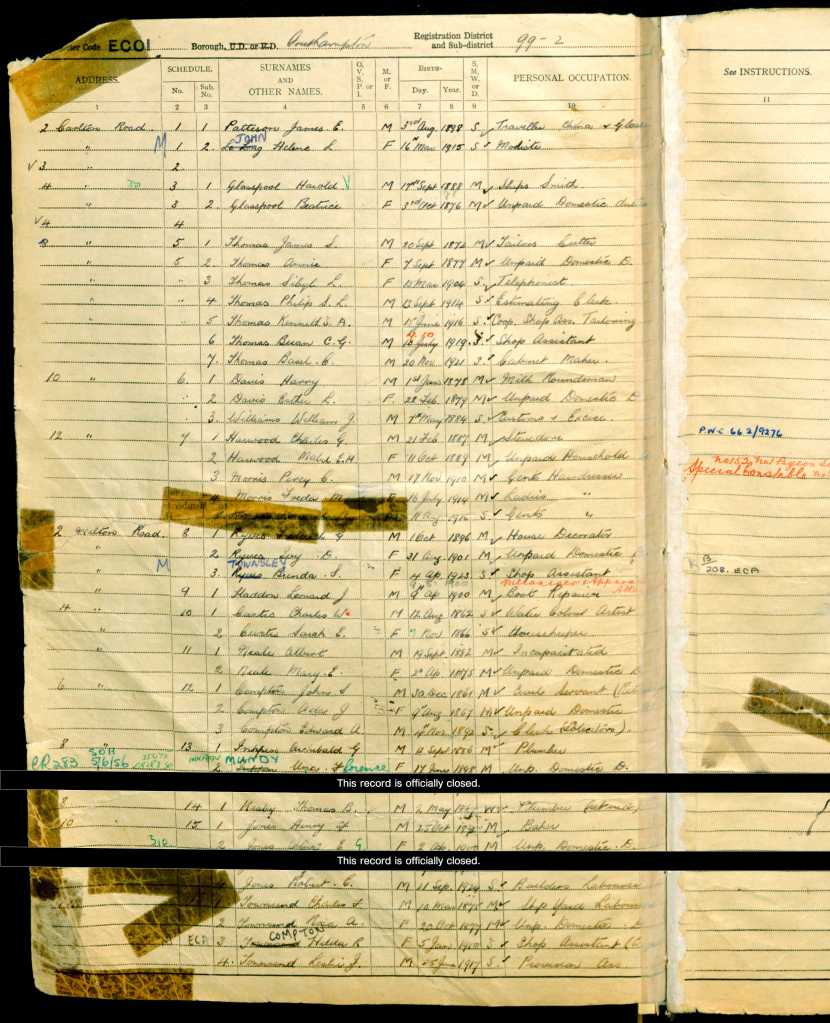 Code ECOI Borough, U.D. or R.D. Southampton Registration District and Sub-district 99-2
ADDRESS. SCHEDULE. SURNAMES AND OTHER NAMES. O. V. S. P. or I. M. or F. BIRTH— S. M. W. or D. PERSONAL OCCUPATION. See INSTRUCTIONS.
No. Sub. No. Day. Year.
1 2 3 4 5 6 7 8 9 10 11
2 Carlton Road 1 1 Patterson James E. M 3rd Aug 1898 S Traveller China & Glass
" M 1 2 JOHN Helene L F 16 Mar 1915 S Modiste
√ 3 " 2
4 " 3 1 Glasspool Harold V M 17th Sept 1888 M Ships Smith
" 3 2 Glasspool Beatrice F 3rd Oct 1876 M Unpaid Domestic
√ 4 4
8 " 5 1 Thomas James S. M 20 Sept 1872 M Tailors Cutter
" 5 2 Thomas Annie F 7 Sept 1877 M Unpaid Domestic D.
" " 3 Thomas Sibyl L. F 13 Mar 1904 S Telephonist
" " 4 Thomas Philip S. L. M 13 Sept 1914 S Estimating Clerk
" " 5 Thomas Kenneth S. A. M 15 June 1916 S Coop. Shop Ass. Tailoring
6 Thomas Brian C. G. M July 1919 S Shop Assistant
7. Thomas Basil. C. M 20 Nov 1921 S Cabinet Maker.
10 " 6. 1 Davis Harry M 1st Jan 1878 M Milk Roundsman
" 2 Davis Esther L. F 28 Feb. 1879 M Unpaid Domestic D
" 3. Williams William J. M 7th May 1884 S Customs & Excise.
12 " 7 1 Harwood Charles G. M 21 Feb 1887 M Stevedore
P.N.C 662/9276
2 Harwood Mabel E.H. F 11 Oct 1889 M Unpaid Household
3 Morris Percy C. M 17 Nov 1910 M Gents Hairdresser
Special Constable
4 Morris Freda M. F 16 July 1914 M Ladies "
Aug 1912 S Gents "
2 Milton Road. 8 1 G M 1 Oct 1896 M House Decorator
" 2 Ivy D. F 31 Aug 1901 M Unpaid Domestic
B
208. ECA
M TOWNSLEY 3 Brenda. S. F 4 Ap. 1923 S Shop Assistant
" 9 1 Haddon Leonard J M 9 Ap 1900 M Boot Repairer
4 " 10 1 Curtis Charles W. M 12 Aug 1862 S Water Colour Artist
2 Curtis Sarah E. F 7 Nov 1866 S Housekeeper
" 11 1 Neale Albert M 19 Sept. 1882 M Incapacitated
2 Neale Mary E. F Ap. 1875 M Unpaid Domestic D
6 " 12 1 Compton John S M 30 Dec 1861 M Civil Servant
2 Compton Ada J F Aug 1867 M Unpaid Domestic
3 Compton Edward A. M Nov 1892 S Clerk (Solicitors).
8 " 13 1 Archibald G M 11 Sept 1886 M Plumber
PR 283 SOH 5/6/56 MUNDY 2 Florence F 17 June 1898 M Unp. Domestic D.
This record is officially closed.
8 14 1 Thomas B. M 2 May Plumber
10 15 1 Jones Henry M 25 Oct M Baker
2 Jones E G. F 2 Ap. M Unp. Domestic. D.
This record is officially closed.
4 Jones Robert C. M 11 Sep. 1924 S Builders Labourer
1 Townsend Charles M 10 Mar 1875 M Ship Yard Labourer
2 Townsend Rose A. F 20 Oct 1877 M Unp. Domestic
M ECA COMPTON 3 Townsend Hilda R F 5 Jan 1910 S Shop Assistant
4. Townsend Leslie J. M 25 Jan 1917 S. Provision Ass